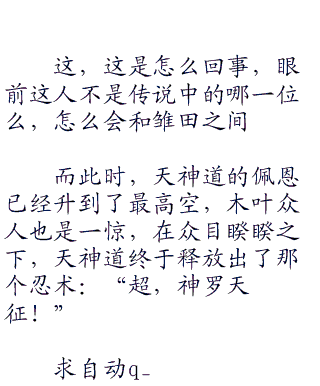 这，这是怎么回事，眼
前这人不是传说中的哪一位
么，怎么会和雏田之间
而此时，天神道的佩恩
已经升到了最高空，木叶众
人也是一惊，在众目睽睽之
下，天神道终于释放出了那
个忍术：“超，神罗天
征！”
求自动q_